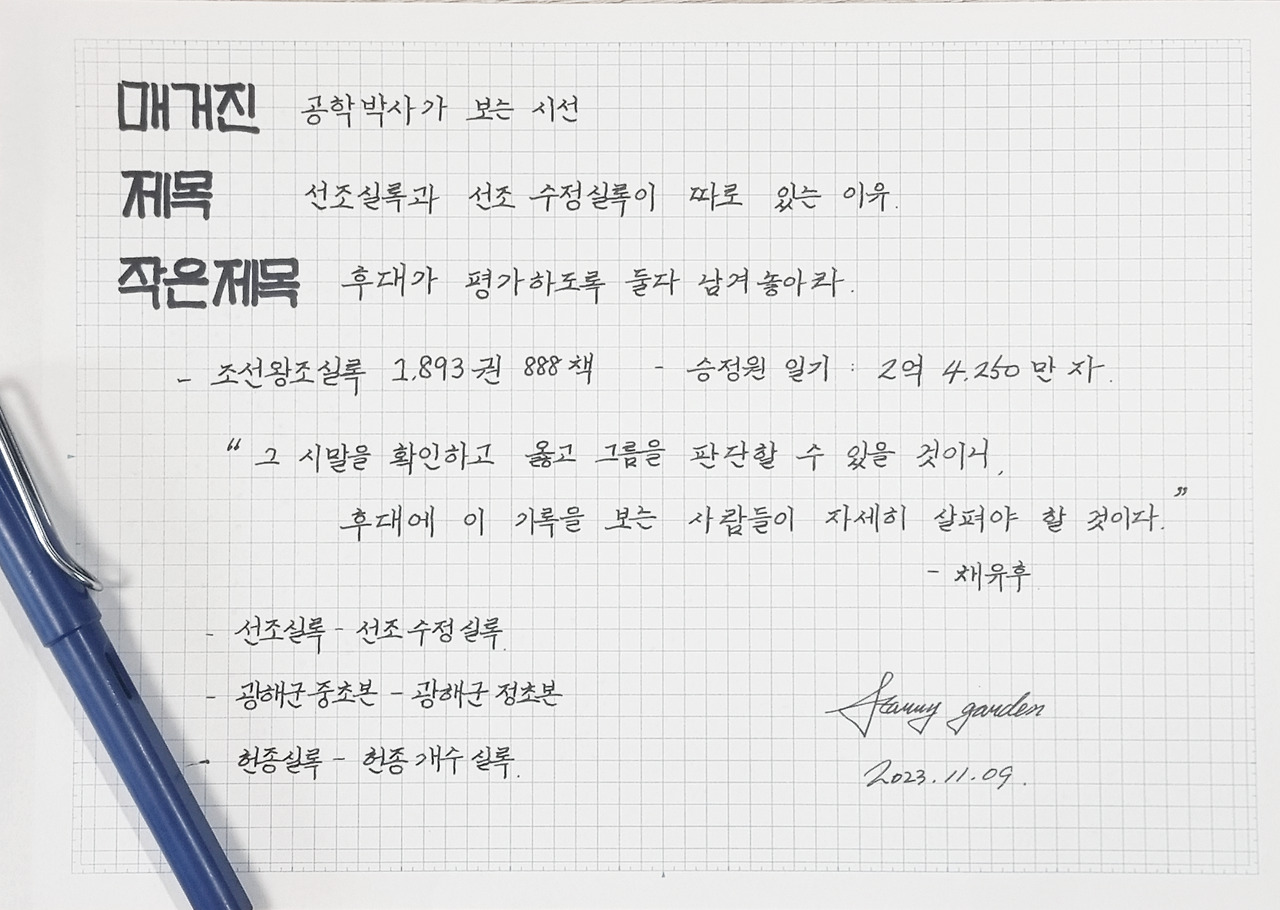 매거진 공학박사가 보는 시선
제목 선조실록과 선조 수정실록이 따로 있는 이유.
작은제목 후대가 평가하도록 둘다 남겨놓아라.
- 조선왕조실록 1,893권 888책 - 승정원 일기 : 2억 4,250만 자.
“ 그 시말을 확인하고 옳고 그름을 판단할 수 있을 것이니,
후대에 이 기록을 보는 사람들이 자세히 살펴야 할 것이다.”
- 채유후
- 선조실록 - 선조수정실록.
- 광해군중초본 - 광해군 정초본
- 헌종실록 - 헌종개수실록.
garden
2023.11.09.